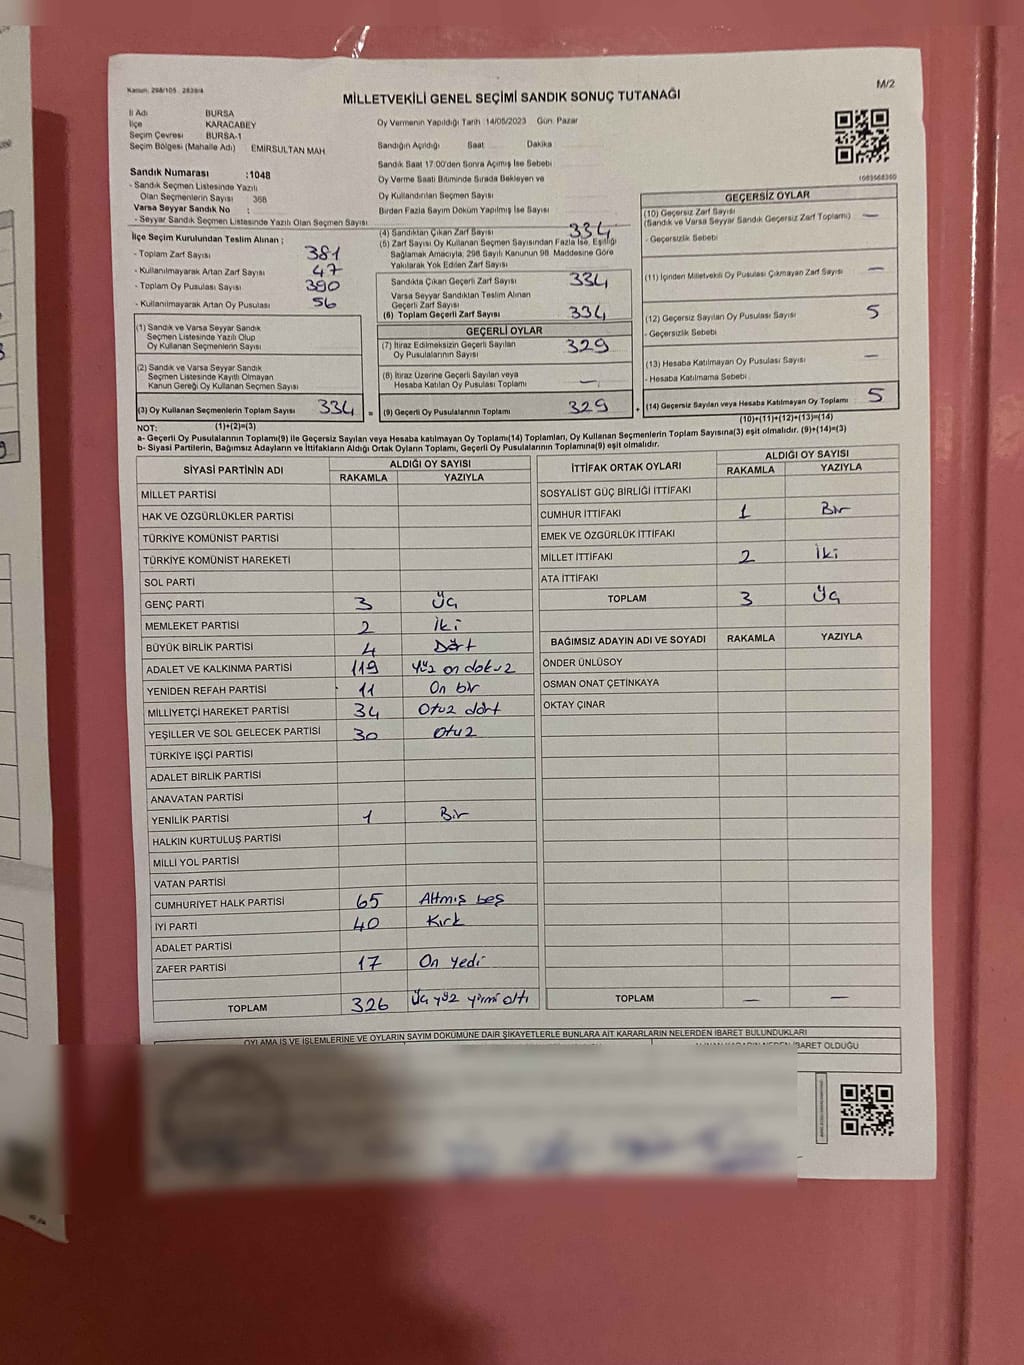 Kanun: 298/105 , 2839/4
M/2
MİLLETVEKİLİ GENEL SEÇİMİ SANDIK SONUÇ TUTANAĞI
İl Adı BURSA
İlçe KARACABEY
Seçim Çevresi BURSA-1
Seçim Bölgesi (Mahalle Adı) EMİRSULTAN MAH
Oy Vermenin Yapıldığı Tarih 14/05/2023 Gün: Pazar
Sandığın Açıldığı Saat Dakika
Sandık Saat 17:00'den Sonra Açımış İse Sebebi
Oy Verme Saati Bitiminde Sırada Bekleyen ve
Oy Kullandırılan Seçmen Sayısı
Birden Fazla Sayım Döküm Yapılmış İse Sayısı
Sandık Numarası :1048
- Sandık Seçmen Listesinde Yazılı
Olan Seçmenlerin Sayısı 368
Varsa Seyyar Sandık No :
- Seyyar Sandık Seçmen Listesinde Yazılı Olan Seçmen Sayısı:
İlçe Seçim Kurulundan Teslim Alınan ;
- Toplam Zarf Sayısı 381
- Kullanılmayarak Artan Zarf Sayısı 47
- Toplam Oy Pusulası Sayısı 390
- Kullanılmayarak Artan Oy Pusulası 56
(1) Sandık ve Varsa Seyyar Sandık
Seçmen Listesinde Yazılı Olup
Oy Kullanan Seçmenlerin Sayısı
(2) Sandık ve Varsa Seyyar Sandık
Seçmen Listesinde Kayıtlı Olmayan
Kanun Gereği Oy Kullanan Seçmen Sayısı
(3) Oy Kullanan Seçmenlerin Toplam Sayısı 334 =
(1)+(2)=(3)
(4) Sandıktan Çıkan Zarf Sayısı 334
(5) Zarf Sayısı Oy Kullanan Seçmen Sayısından Fazla İse, Eşitliği
Sağlamak Amacıyla, 298 Sayılı Kanunun 98. Maddesine Göre
Yakılarak Yok Edilen Zarf Sayısı
Sandıkta Çıkan Geçerli Zarf Sayısı 334
Varsa Seyyar Sandıktan Teslim Alınan
Geçerli Zarf Sayısı
(6) Toplam Geçerli Zarf Sayısı 334
GEÇERLİ OYLAR
(7) İtiraz Edilmeksizin Geçerli Sayılan
Oy Pusulalarının Sayısı 329
(8) İtiraz Üzerine Geçerli Sayılan veya
Hesaba Katılan Oy Pusulası Toplamı —
(9) Geçerli Oy Pusulalarının Toplamı 329 +
GEÇERSİZ OYLAR
(10) Geçersiz Zarf Sayısı
(Sandık ve Varsa Seyyar Sandık Geçersiz Zarf Toplamı) —
- Geçersizlik Sebebi
(11) İçinden Milletvekili Oy Pusulası Çıkmayan Zarf Sayısı —
(12) Geçersiz Sayılan Oy Pusulası Sayısı 5
- Geçersizlik Sebebi
(13) Hesaba Katılmayan Oy Pusulası Sayısı —
- Hesaba Katılmama Sebebi
(14) Geçersiz Sayılan veya Hesaba Katılmayan Oy Toplamı 5
(10)+(11)+(12)+(13)=(14)
NOT:
a- Geçerli Oy Pusulaları Toplamı(9) ile Geçersiz Sayılan veya Hesaba katılmayan Oy Toplamı(14) Toplamları, Oy Kullanan Seçmenlerin Toplam Sayısına(3) eşit olmalıdır. (9)+(14)=(3)
b- Siyasi Partilerin, Bağımsız Adayların ve İttifakların Aldığı Ortak Oyların Toplamı, Geçerli Oy Pusulalarının Toplamına(9) eşit olmalıdır.
SİYASİ PARTİNİN ADI
ALDIĞI OY SAYISI
RAKAMLA YAZIYLA
MİLLET PARTİSİ
HAK VE ÖZGÜRLÜKLER PARTİSİ
TÜRKİYE KOMÜNİST PARTİSİ
TÜRKİYE KOMÜNİST HAREKETİ
SOL PARTİ
GENÇ PARTİ 3 Üç
MEMLEKET PARTİSİ 2 İki
BÜYÜK BİRLİK PARTİSİ 4 Dört
ADALET VE KALKINMA PARTİSİ 119 Yüz on dokuz
YENİDEN REFAH PARTİSİ 11 On bir
MİLLİYETÇİ HAREKET PARTİSİ 34 Otuz dört
YEŞİLLER VE SOL GELECEK PARTİSİ 30 Otuz
TÜRKİYE İŞÇİ PARTİSİ
ADALET BİRLİK PARTİSİ
ANAVATAN PARTİSİ
YENİLİK PARTİSİ 1 Bir
HALKIN KURTULUŞ PARTİSİ
MİLLİ YOL PARTİSİ
VATAN PARTİSİ
CUMHURİYET HALK PARTİSİ 65 Altmış beş
İYİ PARTİ 40 Kırk
ADALET PARTİSİ
ZAFER PARTİSİ 17 On yedi
TOPLAM 326 Üç yüz yirmi altı
İTTİFAK ORTAK OYLARI
ALDIĞI OY SAYISI
RAKAMLA YAZIYLA
SOSYALİST GÜÇ BİRLİĞİ İTTİFAKI
CUMHUR İTTİFAKI 1 Bir
EMEK VE ÖZGÜRLÜK İTTİFAKI
MİLLET İTTİFAKI 2 İki
ATA İTTİFAKI
TOPLAM 3 Üç
BAĞIMSIZ ADAYIN ADI VE SOYADI RAKAMLA YAZIYLA
ÖNDER ÜNLÜSOY
OSMAN ONAT ÇETİNKAYA
OKTAY ÇINAR
TOPLAM — —
OYLAMA İŞ VE İŞLEMLERİNE VE OYLARIN SAYIM DÖKÜMÜNE DAİR ŞİKAYETLERLE BUNLARA AİT KARARLARIN NELERDEN İBARET BULUNDUKLARI
İBARET OLDUĞU